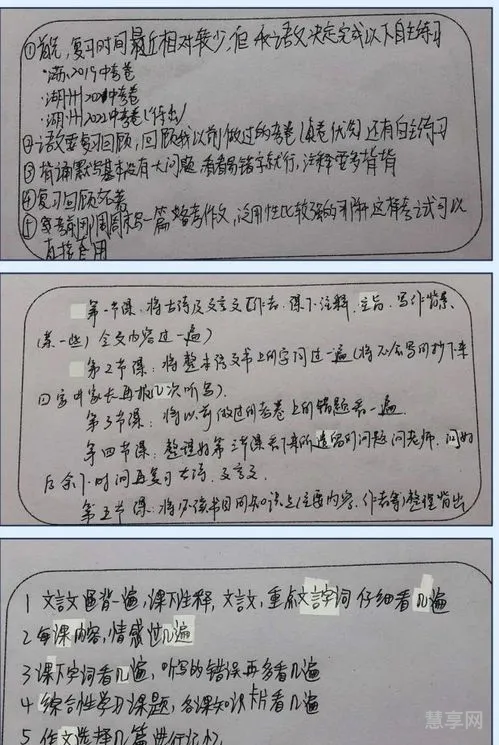 ①首先,复习时间最近相对较少,但 永语文决定完成以下自主练习
·2019中考卷
·湖州2021中考卷
·湖州2022中考卷
②语文重复习回顾,回顾我以前做过的考卷(真卷优先)还有自主练习
③背诵默写基本没有大问题,看看易错字就行,注释要多背背
④复习回顾
⑤每考前那周周末写一篇 备考作文,泛用性比较强的 这样考试可以
直接套用
第一节课:将古诗及文言文(作者、课下注释、主旨、写作背景、
(某一些)全文内容过一遍)
第2节课:将整本语文书上的字词过一遍(将不会写的抄下来
回家叫家长再报几次听写)。
第3节课:将以前做过的考卷上的错题看一遍。
第四节课:整理好第三节课看下来所遗留的问题问老师,问好
后余下时间再复习古诗、文言文。
第五节课:将必读书目的知识点(主要内容、作者等)整理背出
1 文言文通背一遍,课下注释,文言文,重点文言字词 仔细看几遍
2 每课内容,情感过几遍
3 课下字词看几遍,听写的错误再多看几遍
4 综合性学习课题,各课知识卡片看几遍
5 作文选择几篇进行记忆
慧享网